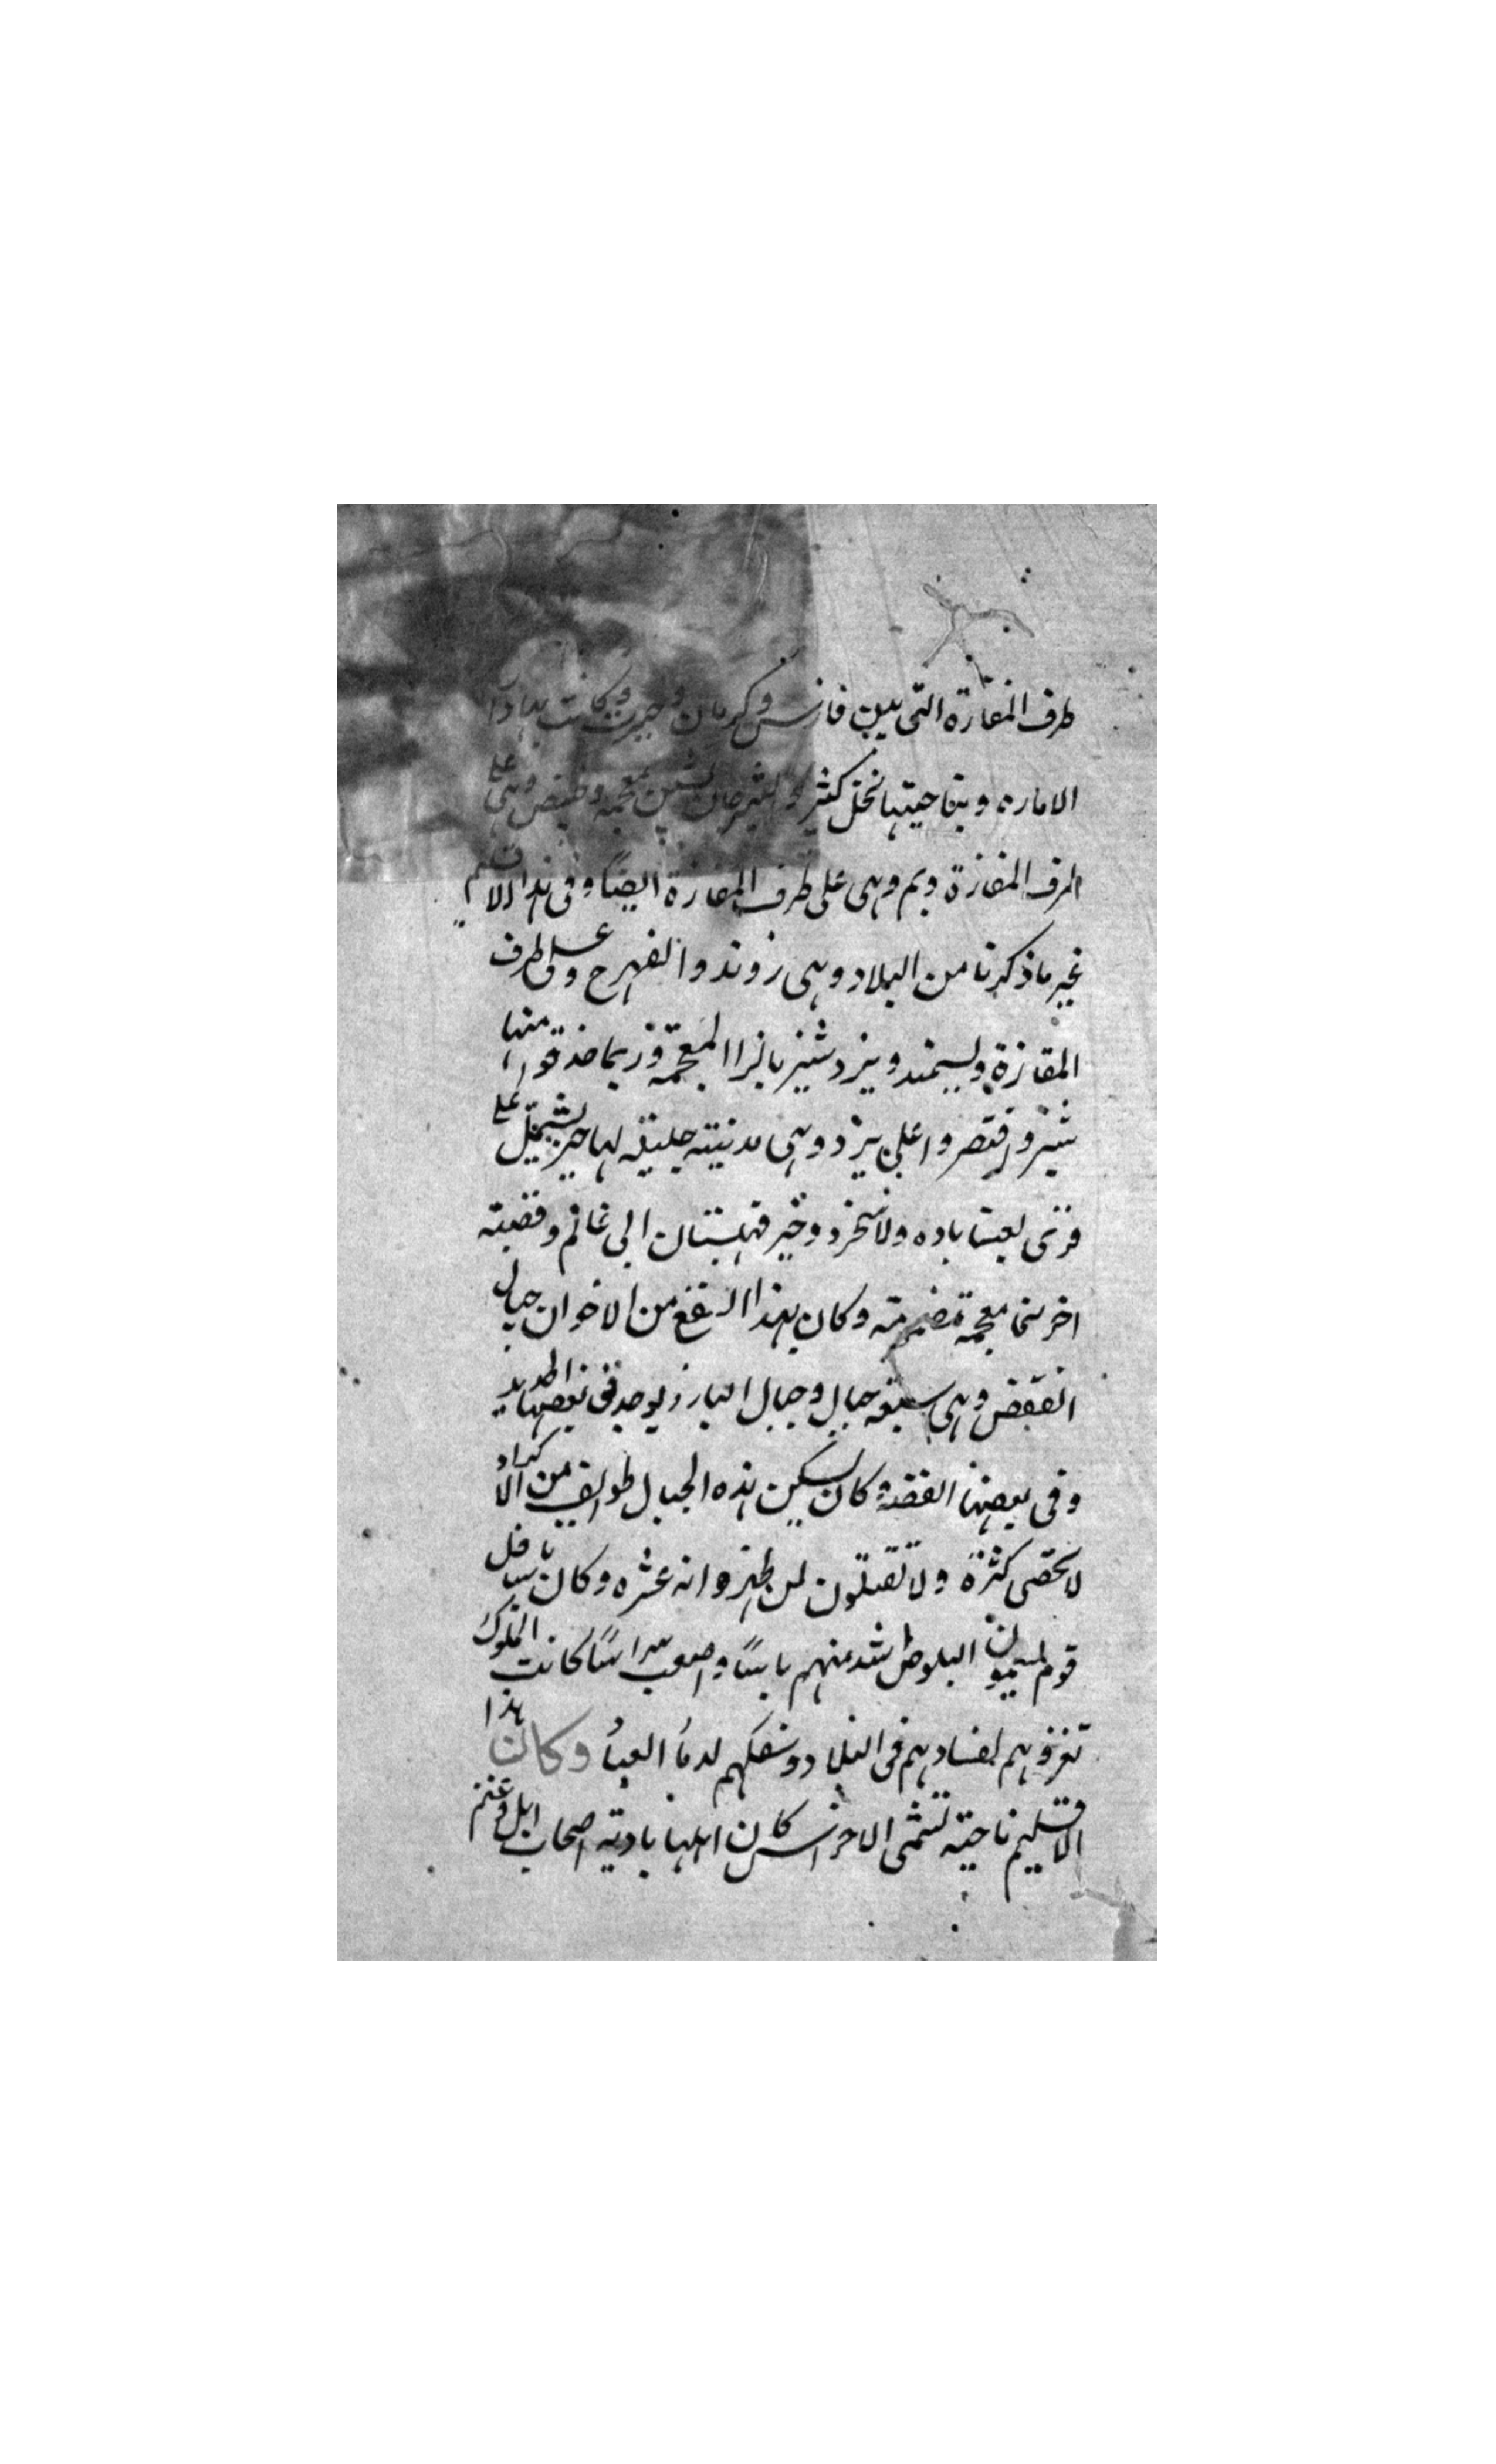 طرف المفازة التى بين فارس وكرمان وجيرفت وكانت بها دار
الاماره وبناحيتها نخل كثير والشيرجان بشين معجمه وخبيص وهى على
طرف المفازة وبم وهى على طرف المفازة ايضًا وفى هذا الاقليم
غير ما ذكرنا من البلاد وهى زوند والفهرج وهى على طرف
المفازة ويزد شيز بالزا المعجمة وربما حذفوا منها
شيز واقتصروا على يزد وهى مدينته جليلة لها حيز يشتمل على
قرى قهستان الى غانم وقصبته
معجمة وكان بهذا الصقع من الاخوان جبال
القفض وهى سبعة جبال وجبال البارز يوجد فى بعضها الحديد
وفى بعضها الفضة وكان يسكن هذه الجبال طوايف من الاكراد
لا تحصى كثرة ولا يقبلون لمن وكان باسافل
قوم يسمون البلوط اشد منهم باسًا واصعب مراسًا كانت الملوك
تغزوهم لفسادهم فى البلاد وسفكهم لدما العباد وكان هذا
الاقليم ناحية تسمى الاخواس كان اهلها بادية اصحاب ابل وغنم